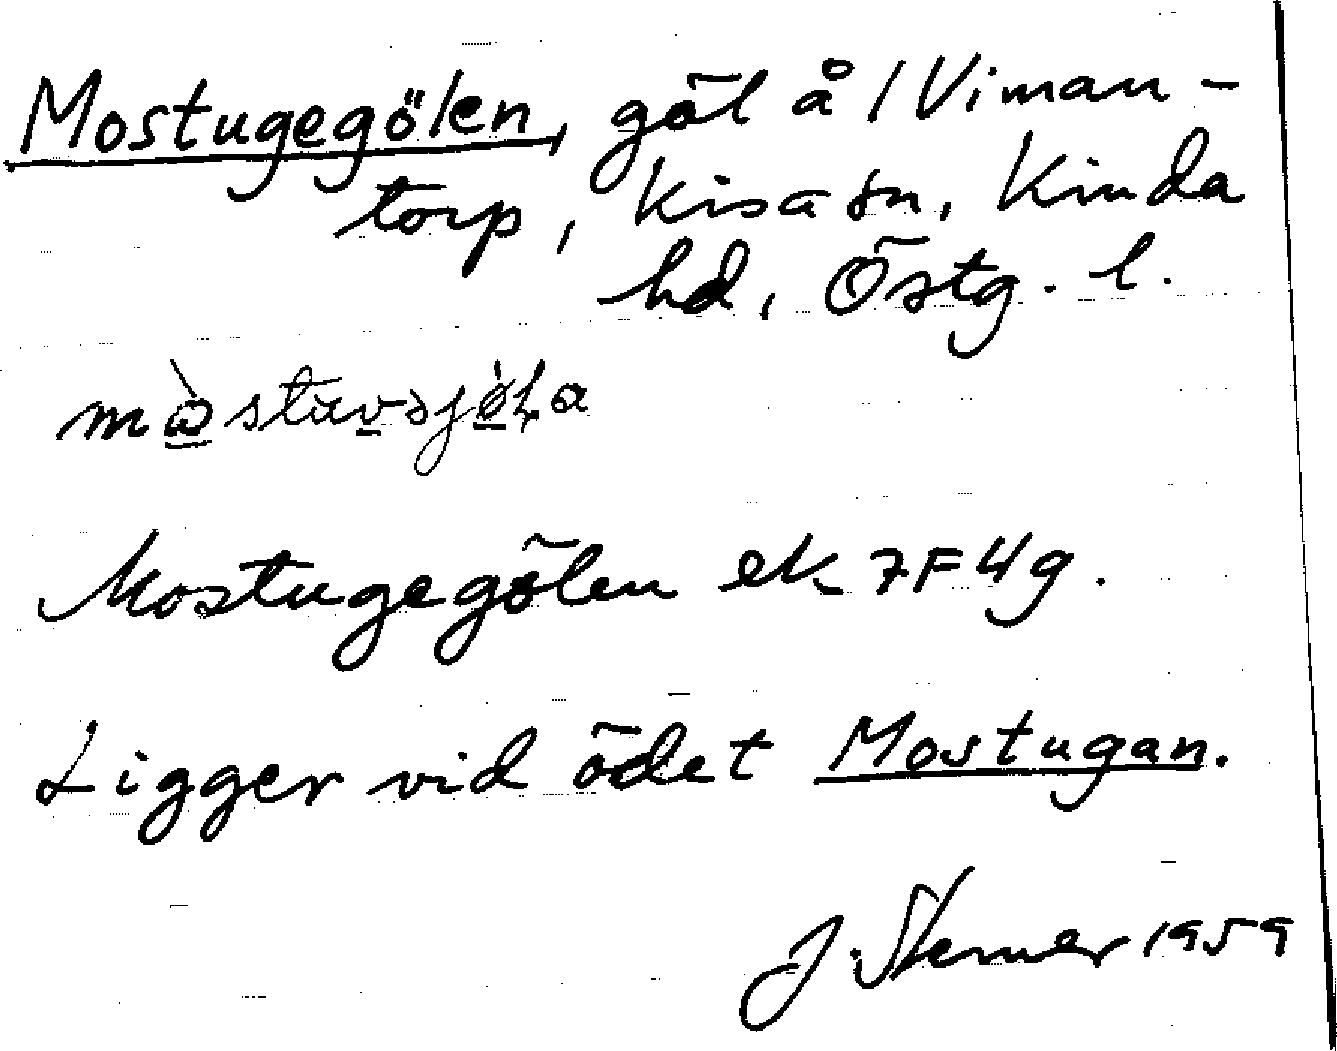 Mostugegölen, göl å 1 Viman-
torp, Kisa sn, Kinda
hd, Östg. l.
Mostugegölen ek 7F4g.
Ligger vid ödet Mostugan.
J. 1959